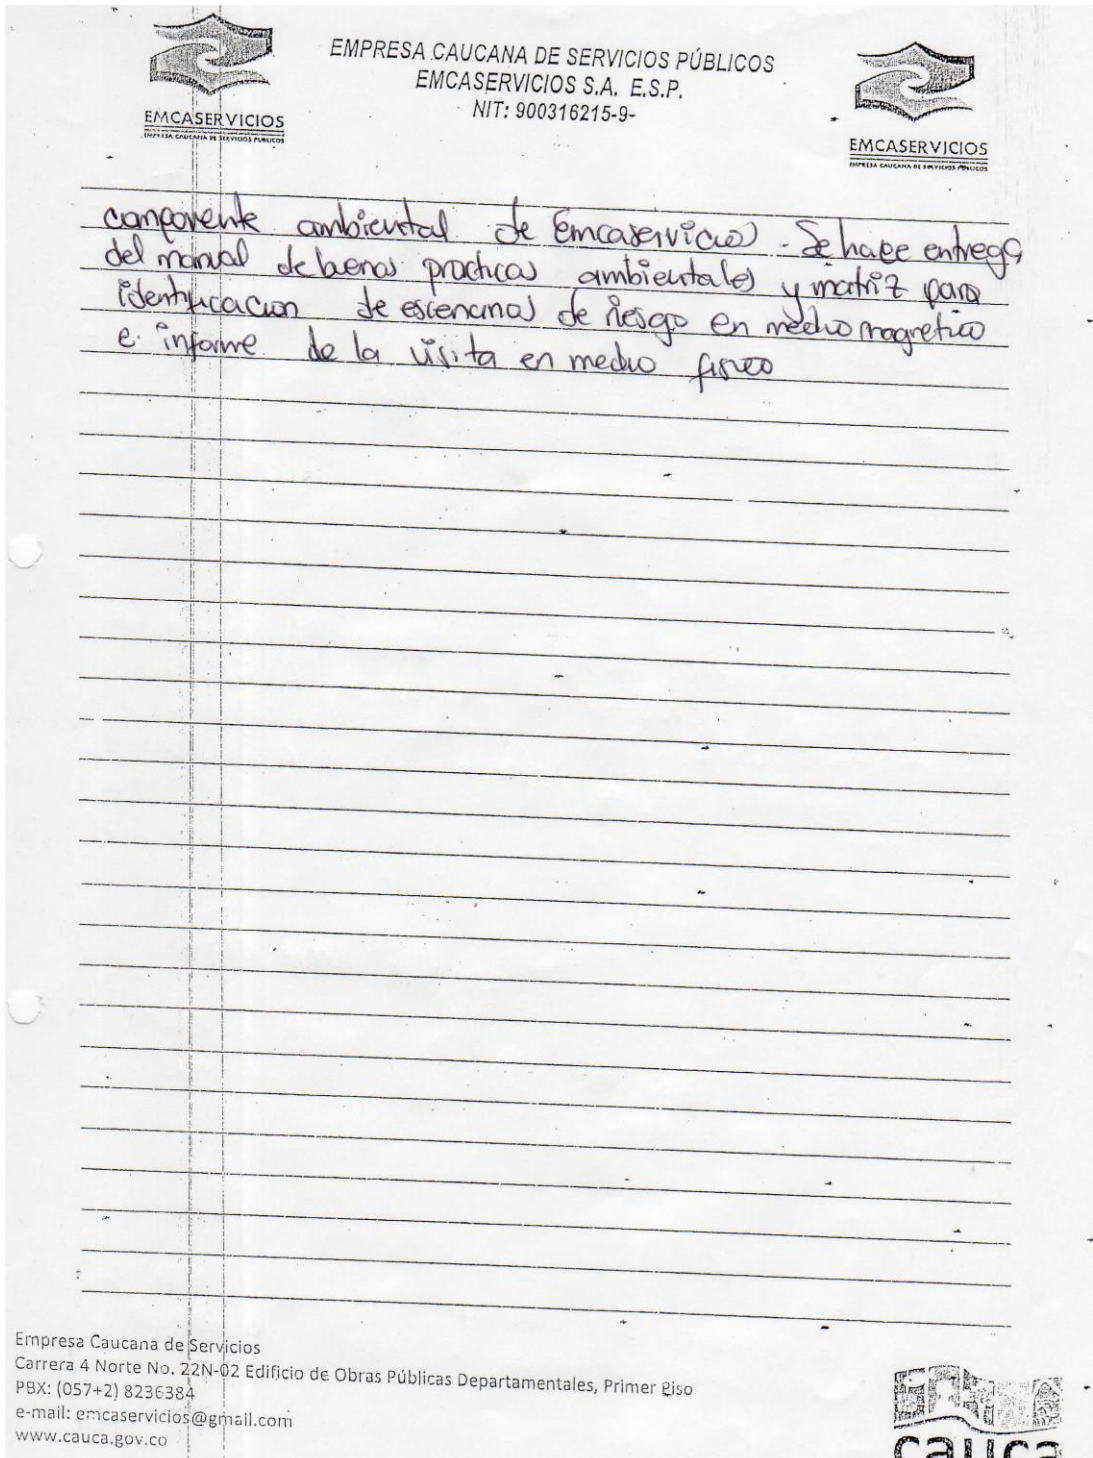 EMPRESA CAUCANA DE SERVICIOS PÚBLICOS
EMCASERVICIOS S.A. E.S.P.
NIT: 900316215-9-
EMCASERVICIOS
EMPRESA CAUCANA DE SERVICIOS PUBLICOS
EMCASERVICIOS
EMPRESA CAUCANA DE SERVICIOS PUBLICOS
componente ambiental de Emcaservicios - Se hace entrega
del manual de buenas practicas ambientales y matriz para
identificacion de escenarios de riesgo en medio magnetico
e informe de la visita en medio fisico
Empresa Caucana de Servicios
Carrera 4 Norte No. 22N-02 Edificio de Obras Públicas Departamentales, Primer Piso
PBX: (057+2) 8236384
e-mail: emcaservicios@gmail.com
www.cauca.gov.co
cauca